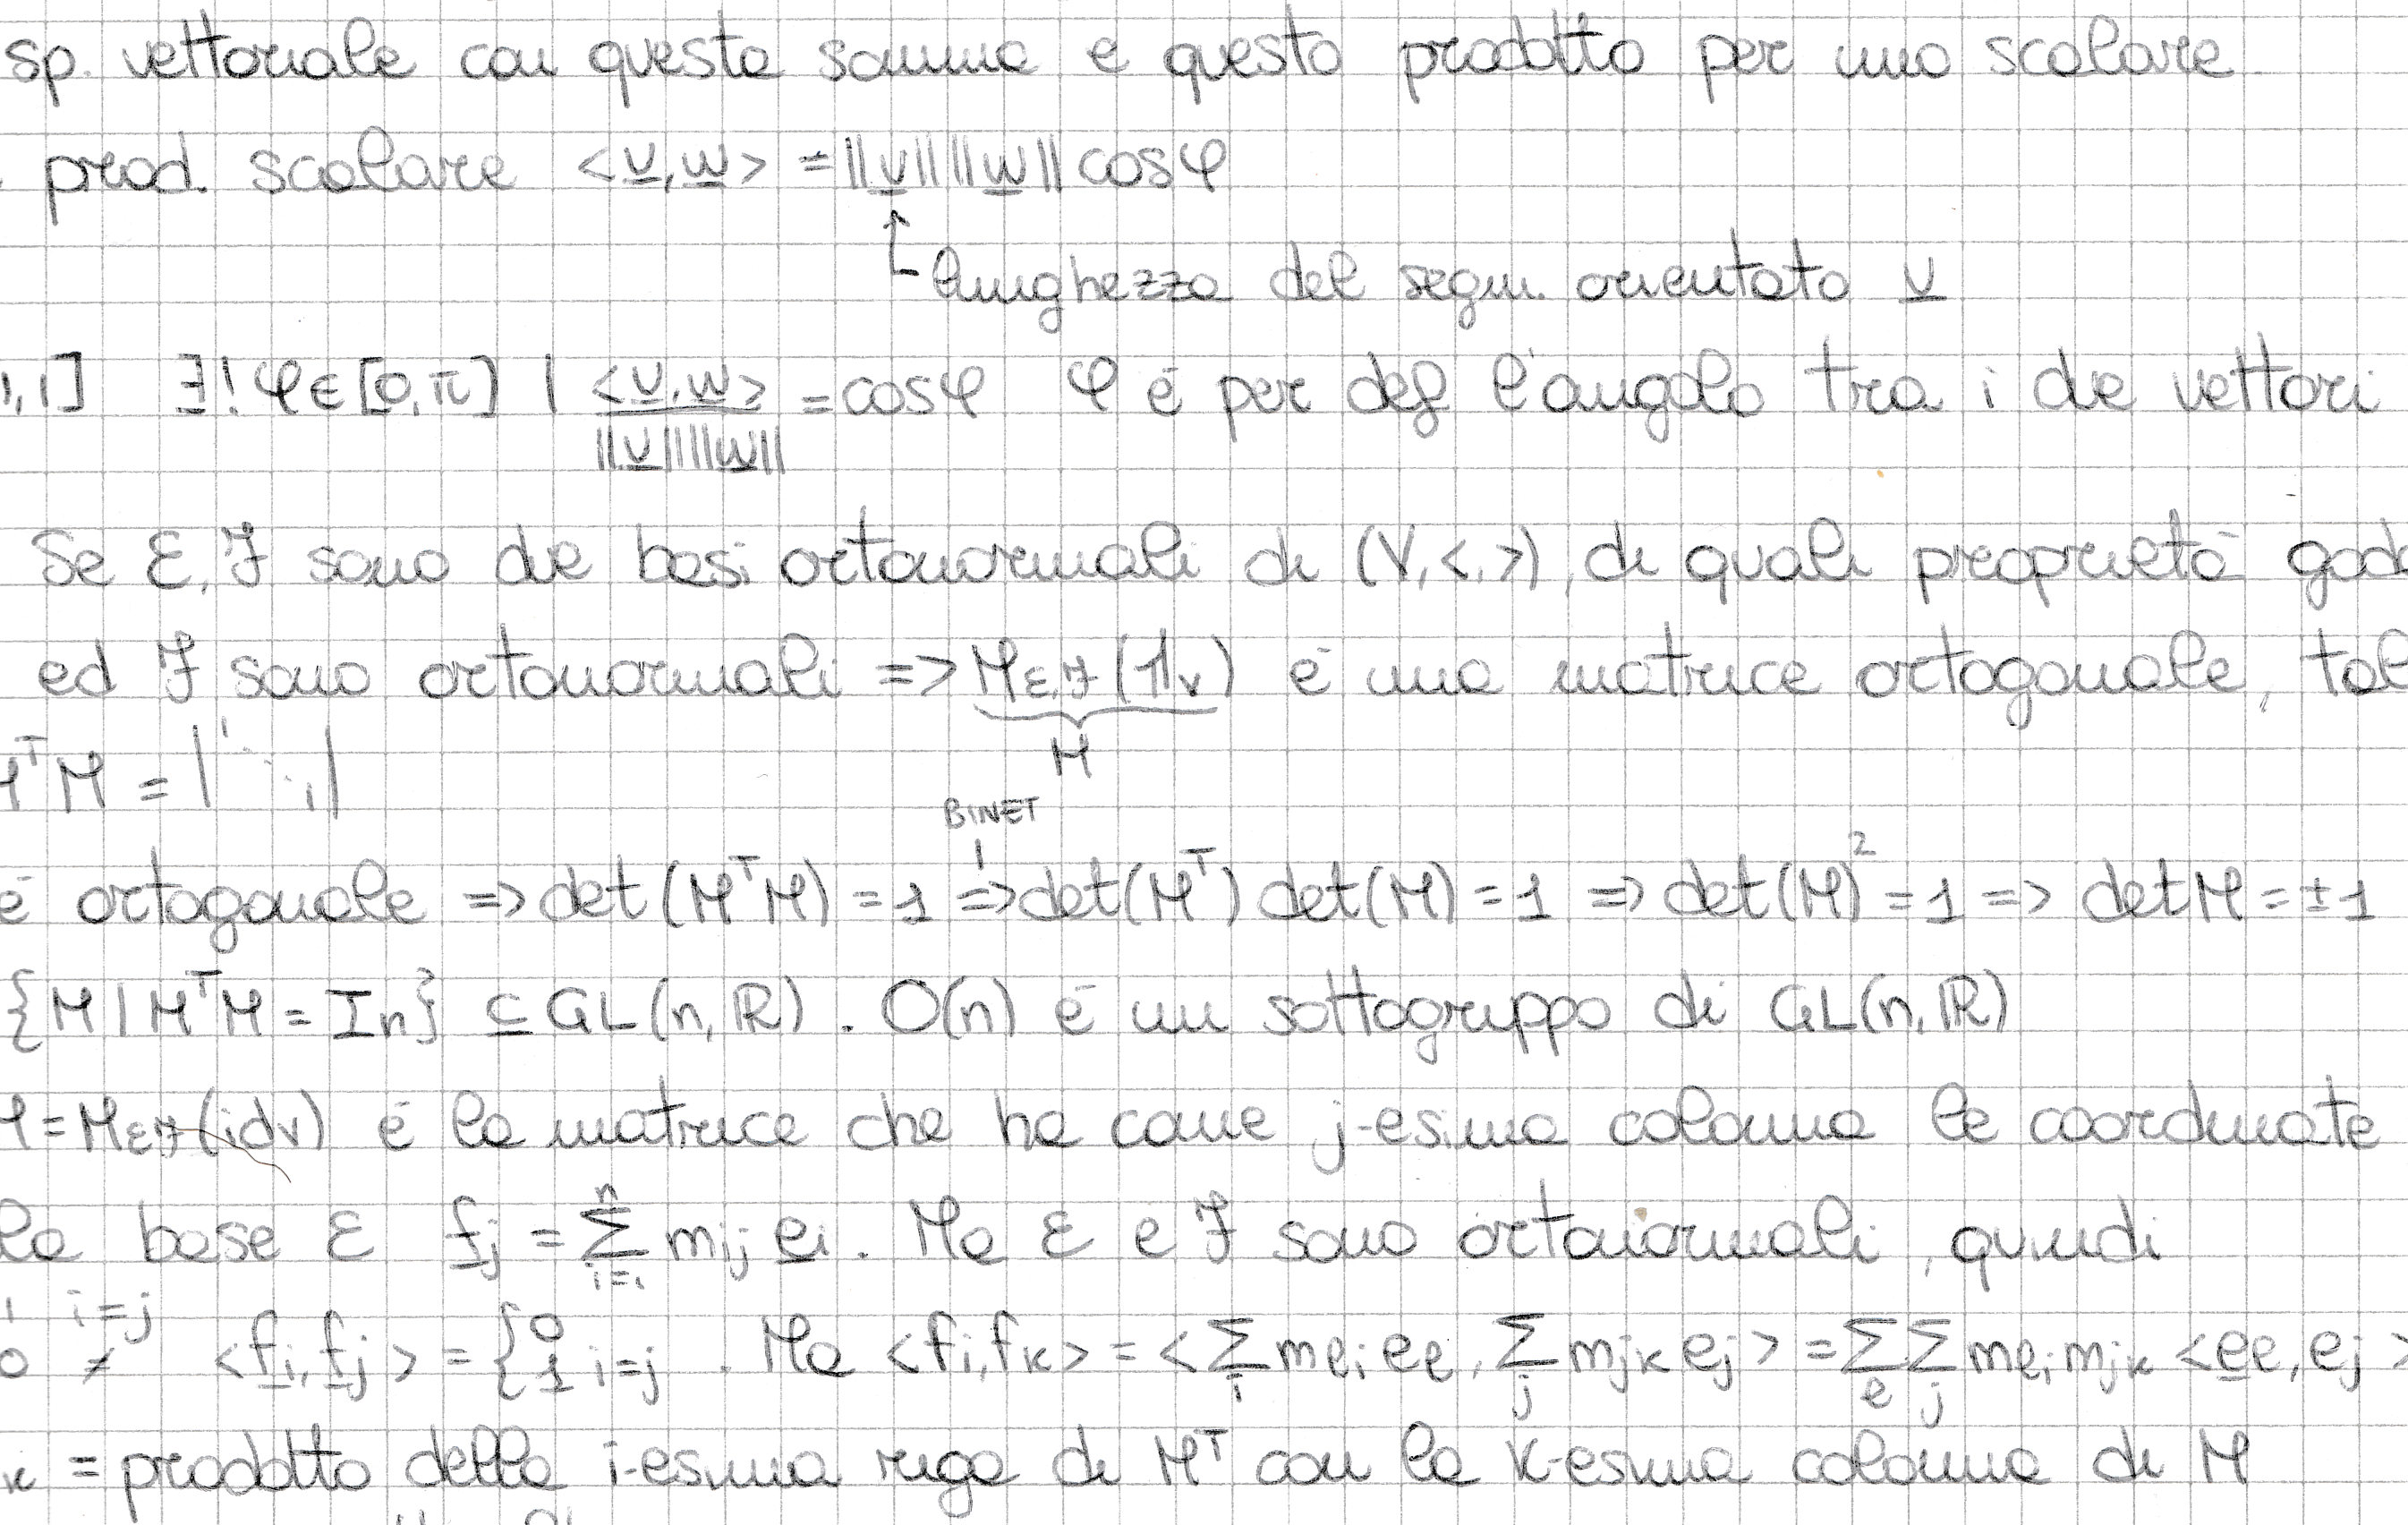 sp. vettoriale con questa somma e questo prodotto per uno scalare
prod. scalare <v,w> = ||v|| ||w|| cosφ
lunghezza del segm. orientato v
1,1] ∃! φ∈[0,π] | <v,w> / ||v|| ||w|| = cosφ φ è per def l'angolo tra i due vettori
Se ℰ, ℱ sono due basi ortonormali di (V,<,>), di quali proprietà god
ed ℱ sono ortonormali => M_{ℰ,ℱ}(1_V) è una matrice ortogonale, tal
M
M^T M = | 1 ⋱ 1 |
BINET
è ortogonale => det(M^T M) = 1 => det(M^T) det(M) = 1 => det(M)^2 = 1 => det M = ±1
{M | M^T M = In} ⊆ GL(n,ℝ). O(n) è un sottogruppo di GL(n,ℝ)
M = M_{ℰℱ}(id_V) è la matrice che ha come j-esima colonna le coordinate
la base ℰ f_j = ∑_{i=1}^{n} m_{ij} e_i. Ma ℰ e ℱ sono ortonormali, quindi
1 i=j
0 ≠ <f_i,f_j> = { 0 1 i=j . Ma <f_i,f_k> = <∑_i m_{ℓi} e_ℓ, ∑_j m_{jk} e_j> = ∑_ℓ ∑_j m_{ℓi} m_{jk} <e_ℓ,e_j>
k = prodotto della i-esima riga di M^T con la k-esima colonna di M